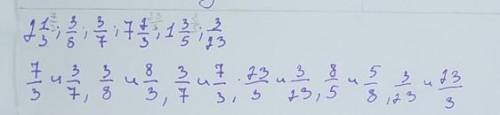 2 1/3; 3/8; 3/7; 7 2/3; 1 3/5; 3/23
7/3 и 3/7, 3/8 и 8/3, 3/7 и 7/3, 23/3 и 3/23, 8/5 и 5/8, 3/23 и 23/3